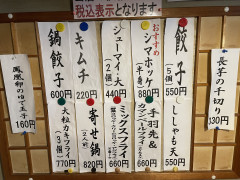 税込表示となります。
長芋の千切り
330円
餃子
(5個)
550円
ししゃも天
550円
おすすめ
シマホッケ
(半身)
880円
手羽先&
カマンベールフライ
660円
シューマイ・大
(2個)
440円
ミックスフライ
660円
キムチ
220円
寄せ鍋
(一人前)
820円
鍋餃子
600円
大粒カキフライ
(3ケ)
770円
160円